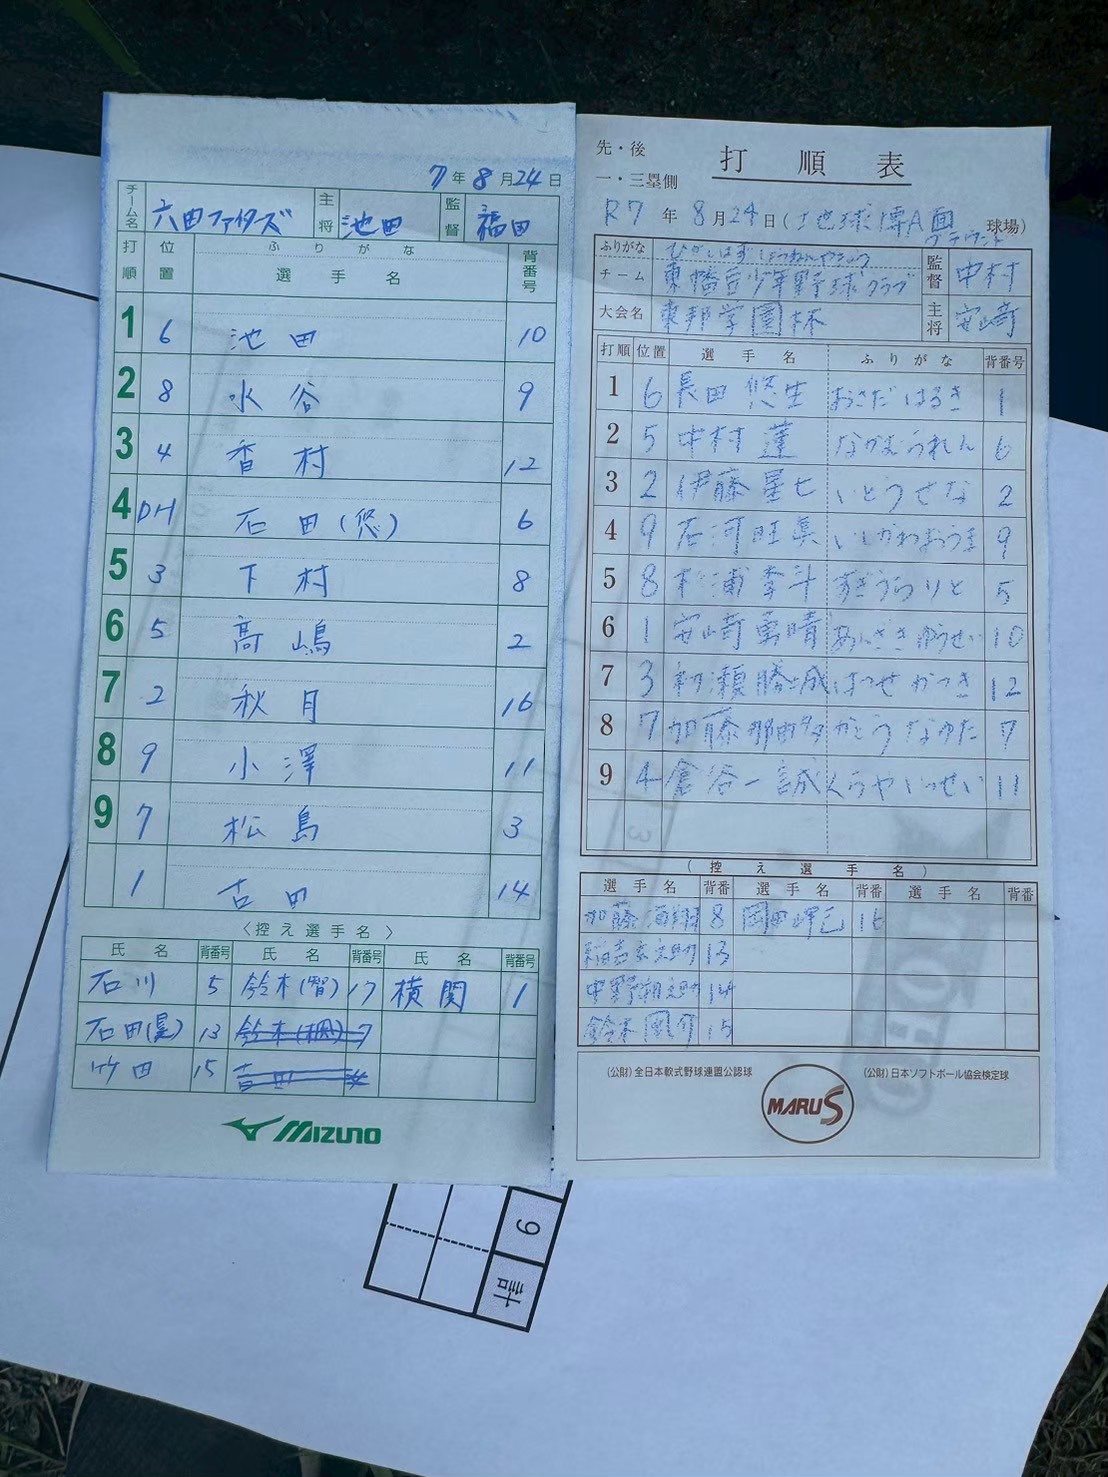 7年8月24日
チーム名 六田ファイターズ 主将 池田 監督 福田
打順 位置 ふりがな 選手名 背番号
1 6 池田 10
2 8 水谷 9
3 4 香村 12
4 DH 石田(悠) 6
5 3 下村 8
6 5 高嶋 2
7 2 秋月 16
8 9 小澤 11
9 7 松島 3
1 吉田 14
〈控え選手名〉
氏名 背番号 氏名 背番号 氏名 背番号
石川 5 鈴木(智) 17 横関 1
石田(晃) 13 鈴木 7
竹田 15 吉田
MIZUNO
先・後
打順表
一・三塁側
R7年8月24日(地球博A面 球場)
グラウンド
ふりがな ひがしはずしょうねんやきゅう
チーム 東幡豆少年野球クラブ 監督 中村
大会名 東邦学園杯 主将 安﨑
打順 位置 選手名 ふりがな 背番号
1 6 長田 悠生 おさだ はるき 1
2 5 中村 蓮 なかむられん 6
3 2 伊藤 星七 いとうせな 2
4 9 石河旺真 いしかわおうま 9
5 8 杉浦李斗 すぎうらりと 5
6 1 安﨑勇晴 あんざきゆうせい 10
7 3 初瀬勝城 はつせ かつき 12
8 7 加藤那由多 かとうなゆた 7
9 4 倉谷一誠 くらやいっせい 11
(控え選手名)
選手名 背番 選手名 背番 選手名 背番
加藤 8 岡田 16
13
中野 14
鈴木 15
(公財)全日本軟式野球連盟公認球
(公財)日本ソフトボール協会検定球
MARUS
9
計